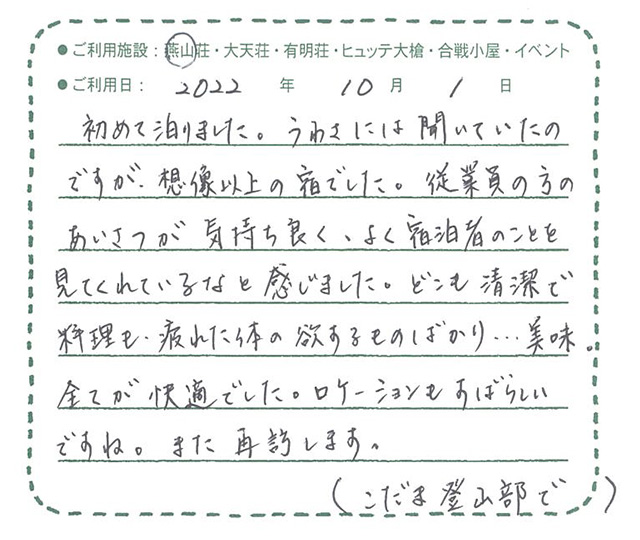 ●ご利用施設：燕山荘・大天荘・有明荘・ヒュッテ大槍・合戦小屋・イベント
●ご利用日： 2022 年 10 月 1 日
初めて泊りました。うわさには聞いていたの
ですが、想像以上の宿でした。従業員の方の
あいさつが気持ち良く、よく宿泊者のことを
見てくれているなと感じました。どこも清潔で
料理も、疲れた体の欲するものばかり…美味。
全てが快適でした。ロケーションもすばらしい
ですね。また再訪します。
(こだま登山部で)